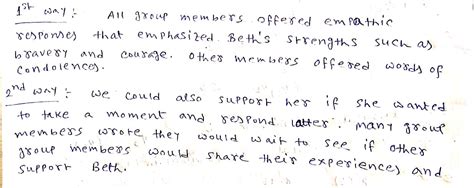 1st way :- All group members offered empathic
responses that emphasized Beth's strengths such as
bravery and courage. other members offered words of
condolences.
2nd way :- we could also support her if she wanted
to take a moment and respond latter. many group
members wrote they would wait to see if other
group members would share their experiences and
support Beth.